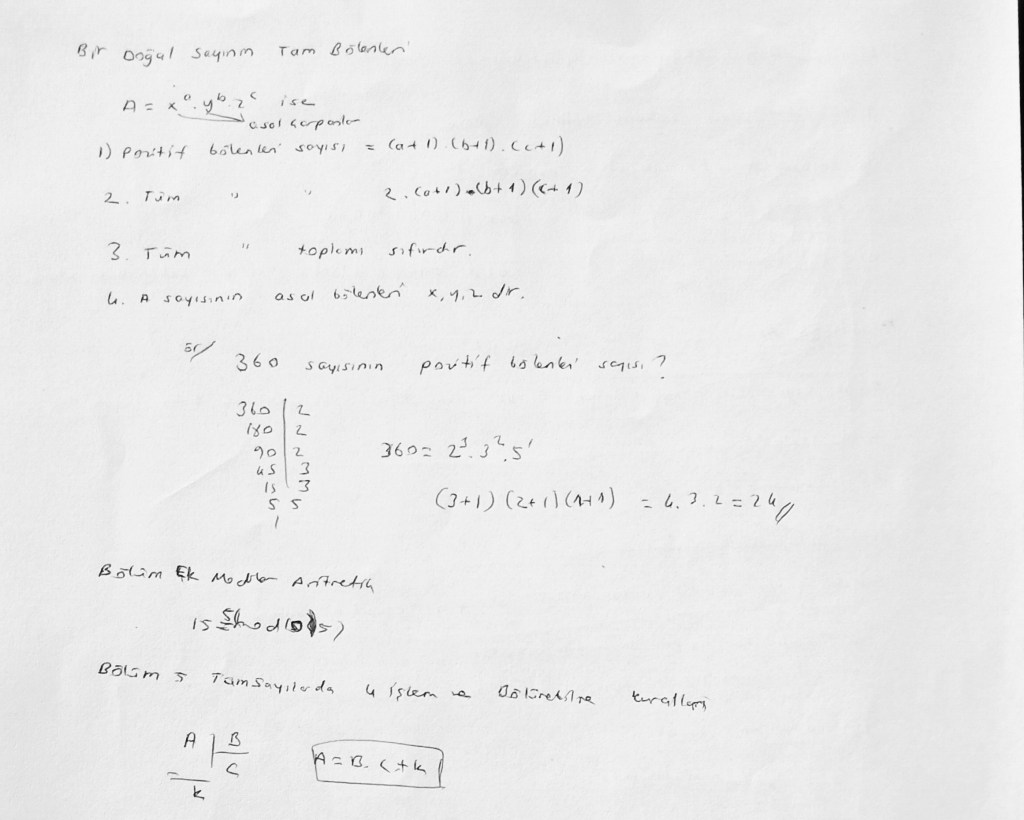 Bir Doğal Sayının Tam Bölenleri
A = x^a . y^b . z^c ise
asal çarpanlar
1) Pozitif bölenleri sayısı = (a+1) (b+1) . (c+1)
2. Tüm " " 2 . (a+1) . (b+1) (c+1)
3. Tüm " toplamı sıfırdır.
4. A sayısının asal bölenleri x, y, z dir.
ör/ 360 sayısının pozitif bölenleri sayısı ?
360 | 2
180 | 2
90 | 2
45 | 3
15 | 3
5 5
1
360 = 2^3 . 3^2 . 5^1
(3+1) (2+1) (1+1) = 4 . 3 . 2 = 24 //
Bölüm Ek Modüler Aritmetik
15
Bölüm 5 Tamsayılarda 4 işlem ve Bölünebilme kuralları
A | B
C
k
A = B . C + k